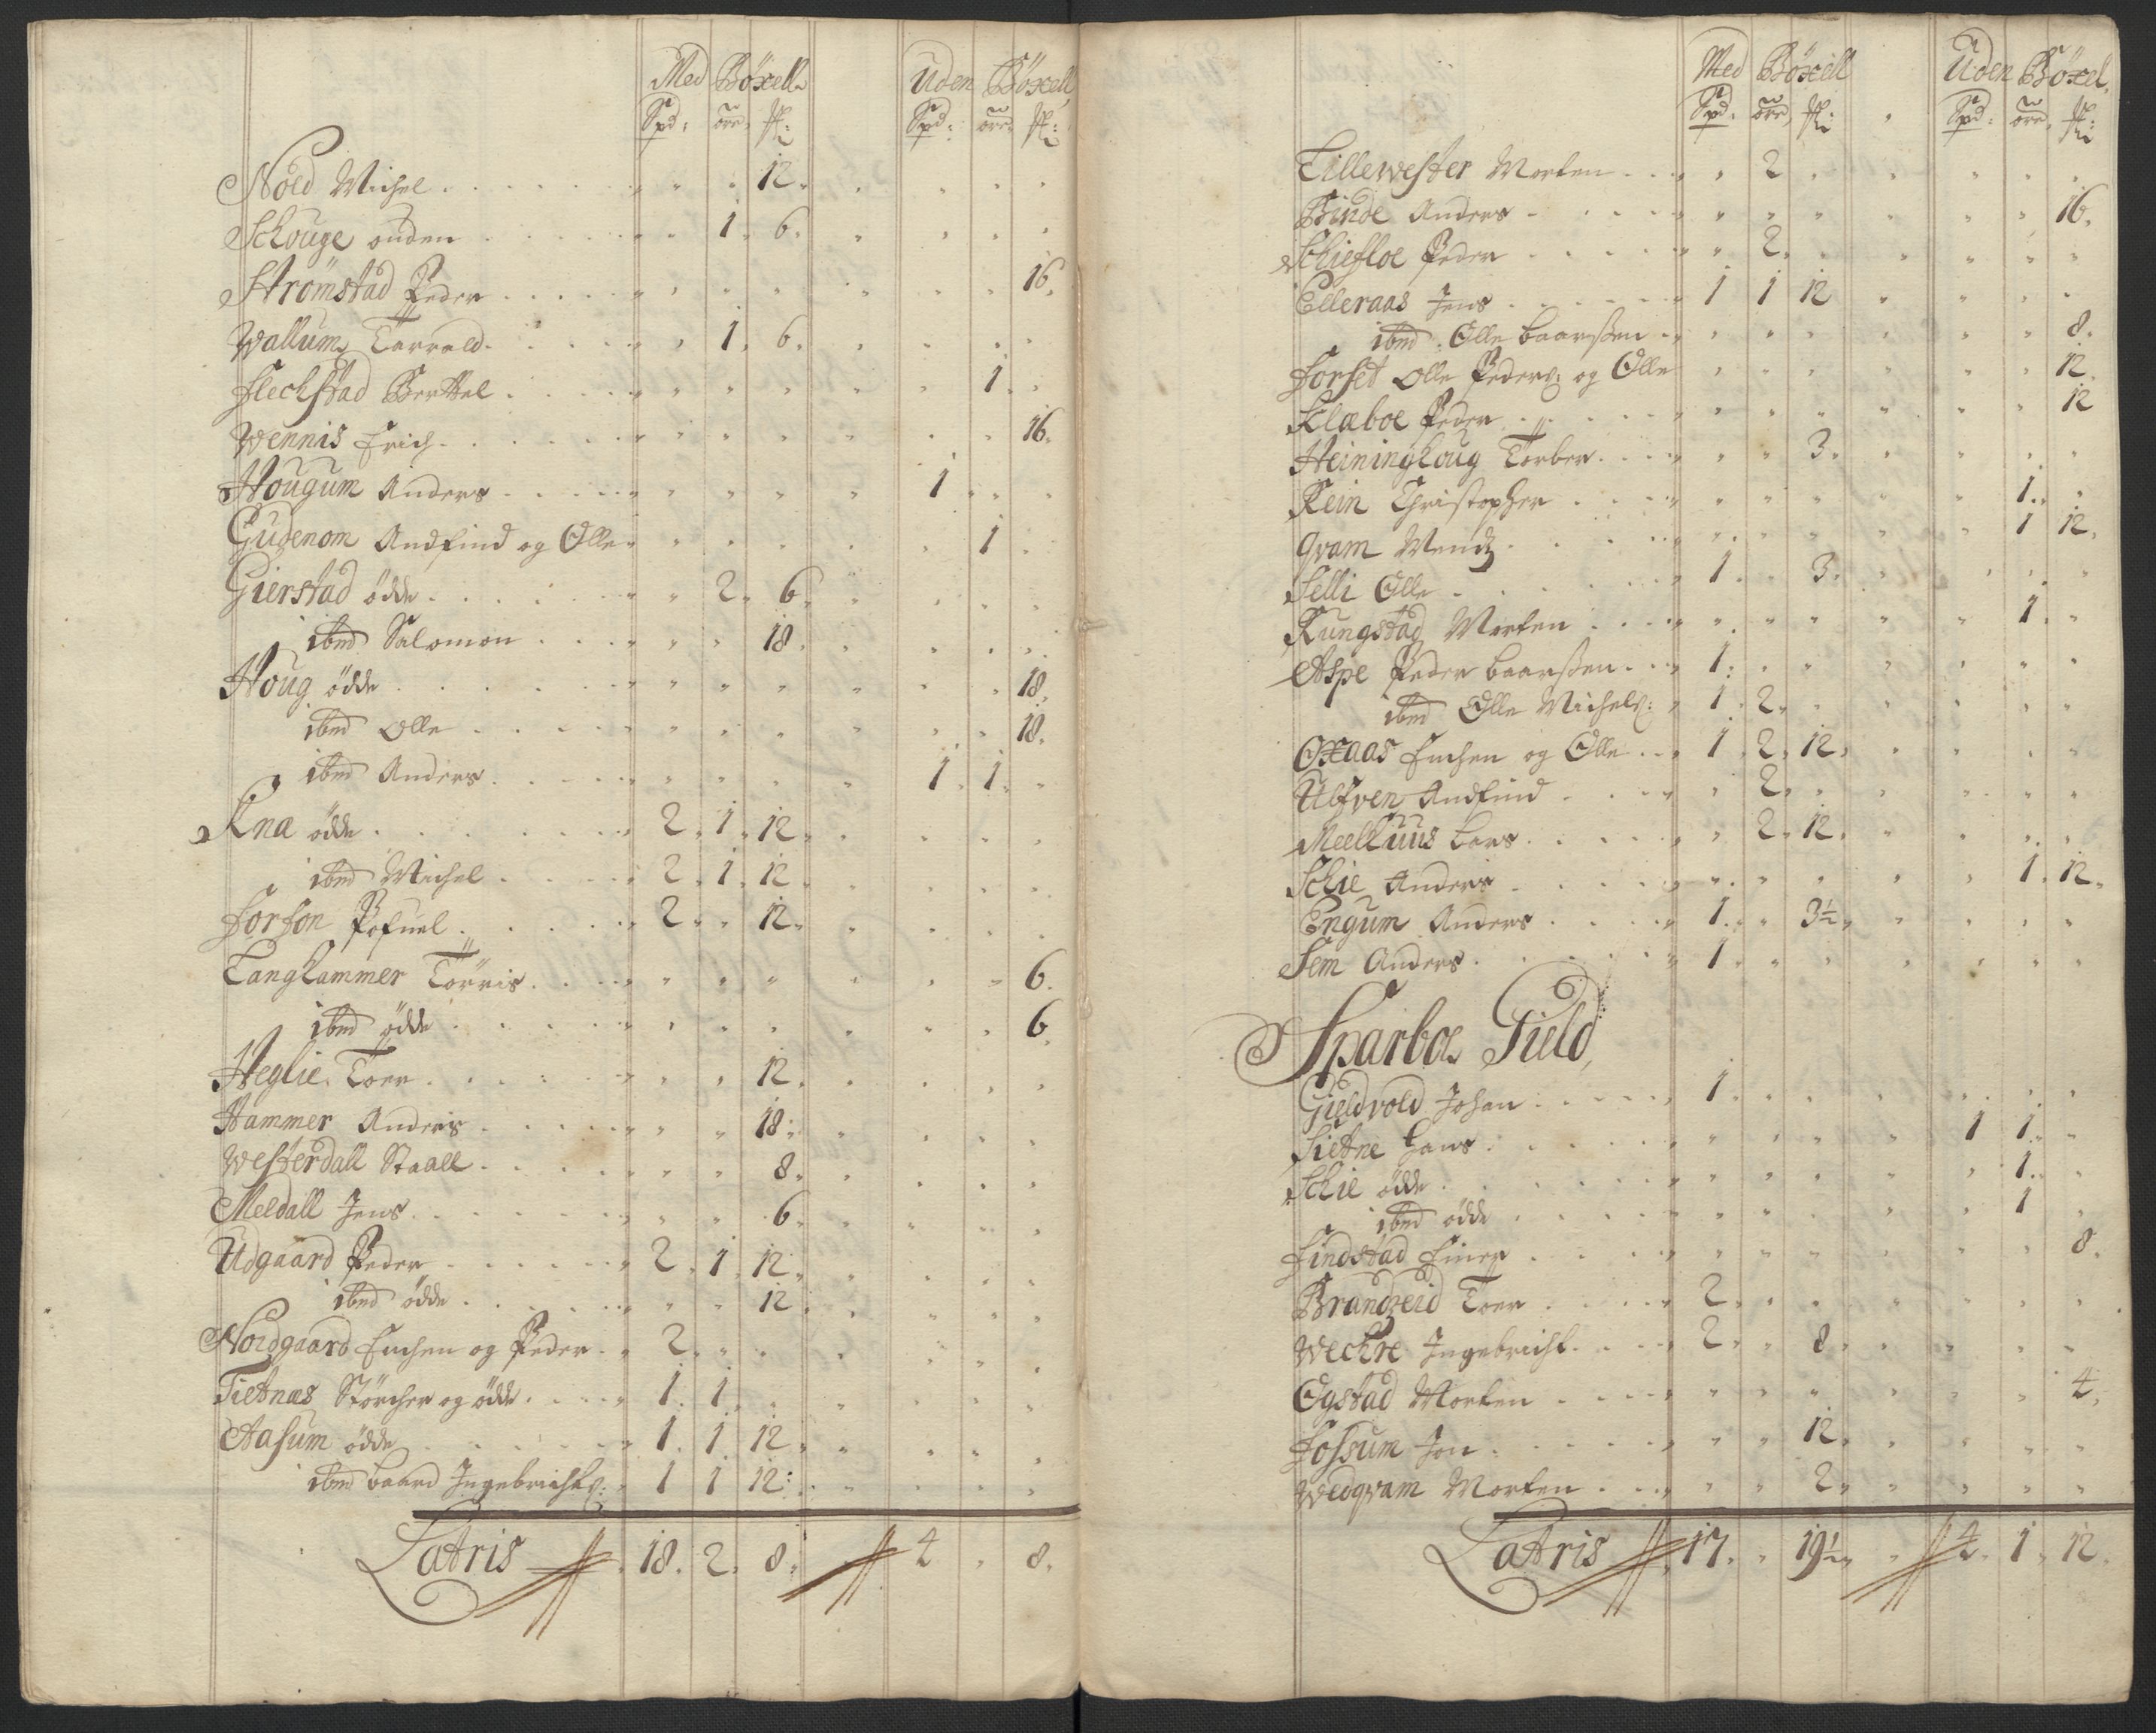 Med Böxell Uden Böxell
Spd: öre, Uden Spd: öre,
Nöld Michel 12
Schouge onden 1 6
Strömstad Peder 16
Wallum Tarrald 1 6
Flechstad Berttel 1
Wennis Erich 16
Hougum Anders 1
Gudenom Andfind og Olle 1
Gierstad ödde 2 6
ibed Salomon 18
Houg ödde 18
ibed Olle 18
ibed Anders 1 1
Kna ödde 2 1 12
ibed Michel 2 1 12
Forfon Pofuel 2 12
Langhammer Törris 6
ibed ödde 6
Heglie Toer 12
Hammer Anders 18
Westerdall Staall 8
Meldall Jens 6
Udgaard Peder 2 1 12
ibed ödde 12
Nordgaard Enchen og Peder 2
Tietnæs Störcher og ödde 1 1
Aasum ödde 1 1 12
ibed Baard Ingebrichts: 1 1 12
Latris 18 2 8 4 8
Med Böxell Uden Böxel
Spd: öre, Spd: öre,
Lillewester Morten 2
Binde Anders 16
Schieftoe Peder 2
Elleraas Jens 1 1 12
ibed Olle Baarsen 8
Forset Olle Peders: og Olle 12
Klæboe Peder 12
Heininghoug Torber 3
Rein Christopher 1
Qvam Mendz 1 12
Selli Olle 1 3
Rungstad Morten 1
Aspe Peder Baarsen 1
ibed Olle Michels: 1 2
Oxaas Enchen og Olle 1 2 12
Ulfven Andfind 2
Meelhuus Lars 2 12
Schie Anders 1 12
Engum Anders 1 3½
Sem Anders 1
Sparboe Gield
Gieldvold Johan 1
Sietne Hans 1 1
Schie ödde 1
ibed ödde 1
Findstad Einer 8
Brandzeid Toer 2
Wechre Ingebricht 2 8
Ogstad Morten 4
Fossum Jon 12
Wedqvam Morten 2
Latris 17 19½ 4 1 12